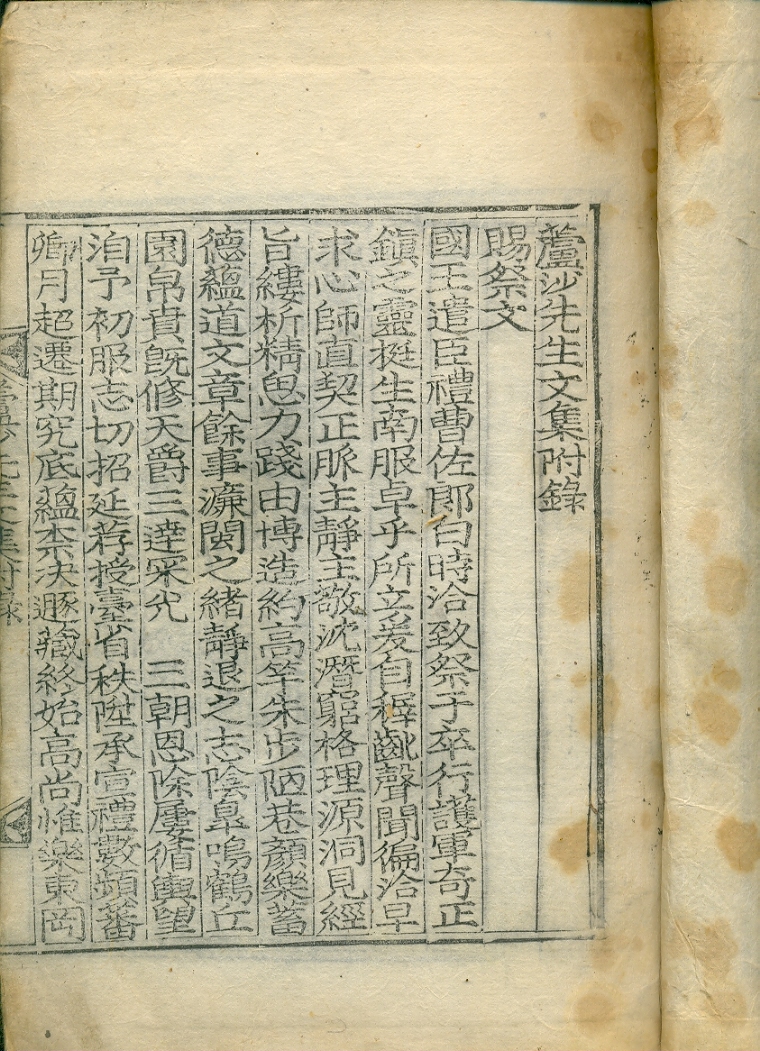 蘆沙先生文集附錄
賜祭文
國王遣臣禮曹佐郎白時洽致祭于卒行護軍奇正
鎭之靈挺生南服卓乎所立爰自稺齔聲聞徧洽早
求心師直契正脈主靜主敬沈潛窮格理源洞見經
旨縷析精思力踐由博造約高竿朱步陋巷顏樂蓄
德蘊道文章餘事濂閩之緖靜退之志陰臯鳴鶴丘
園帛賁旣修天爵三達寀允 三朝恩除屢循輿望
洎予初服志切招延荐授臺省秩陞承宣禮數頻蕃
卿月超遷期究底蘊柰决遯藏終始高尙惟樂東岡
蘆沙先生文集附錄